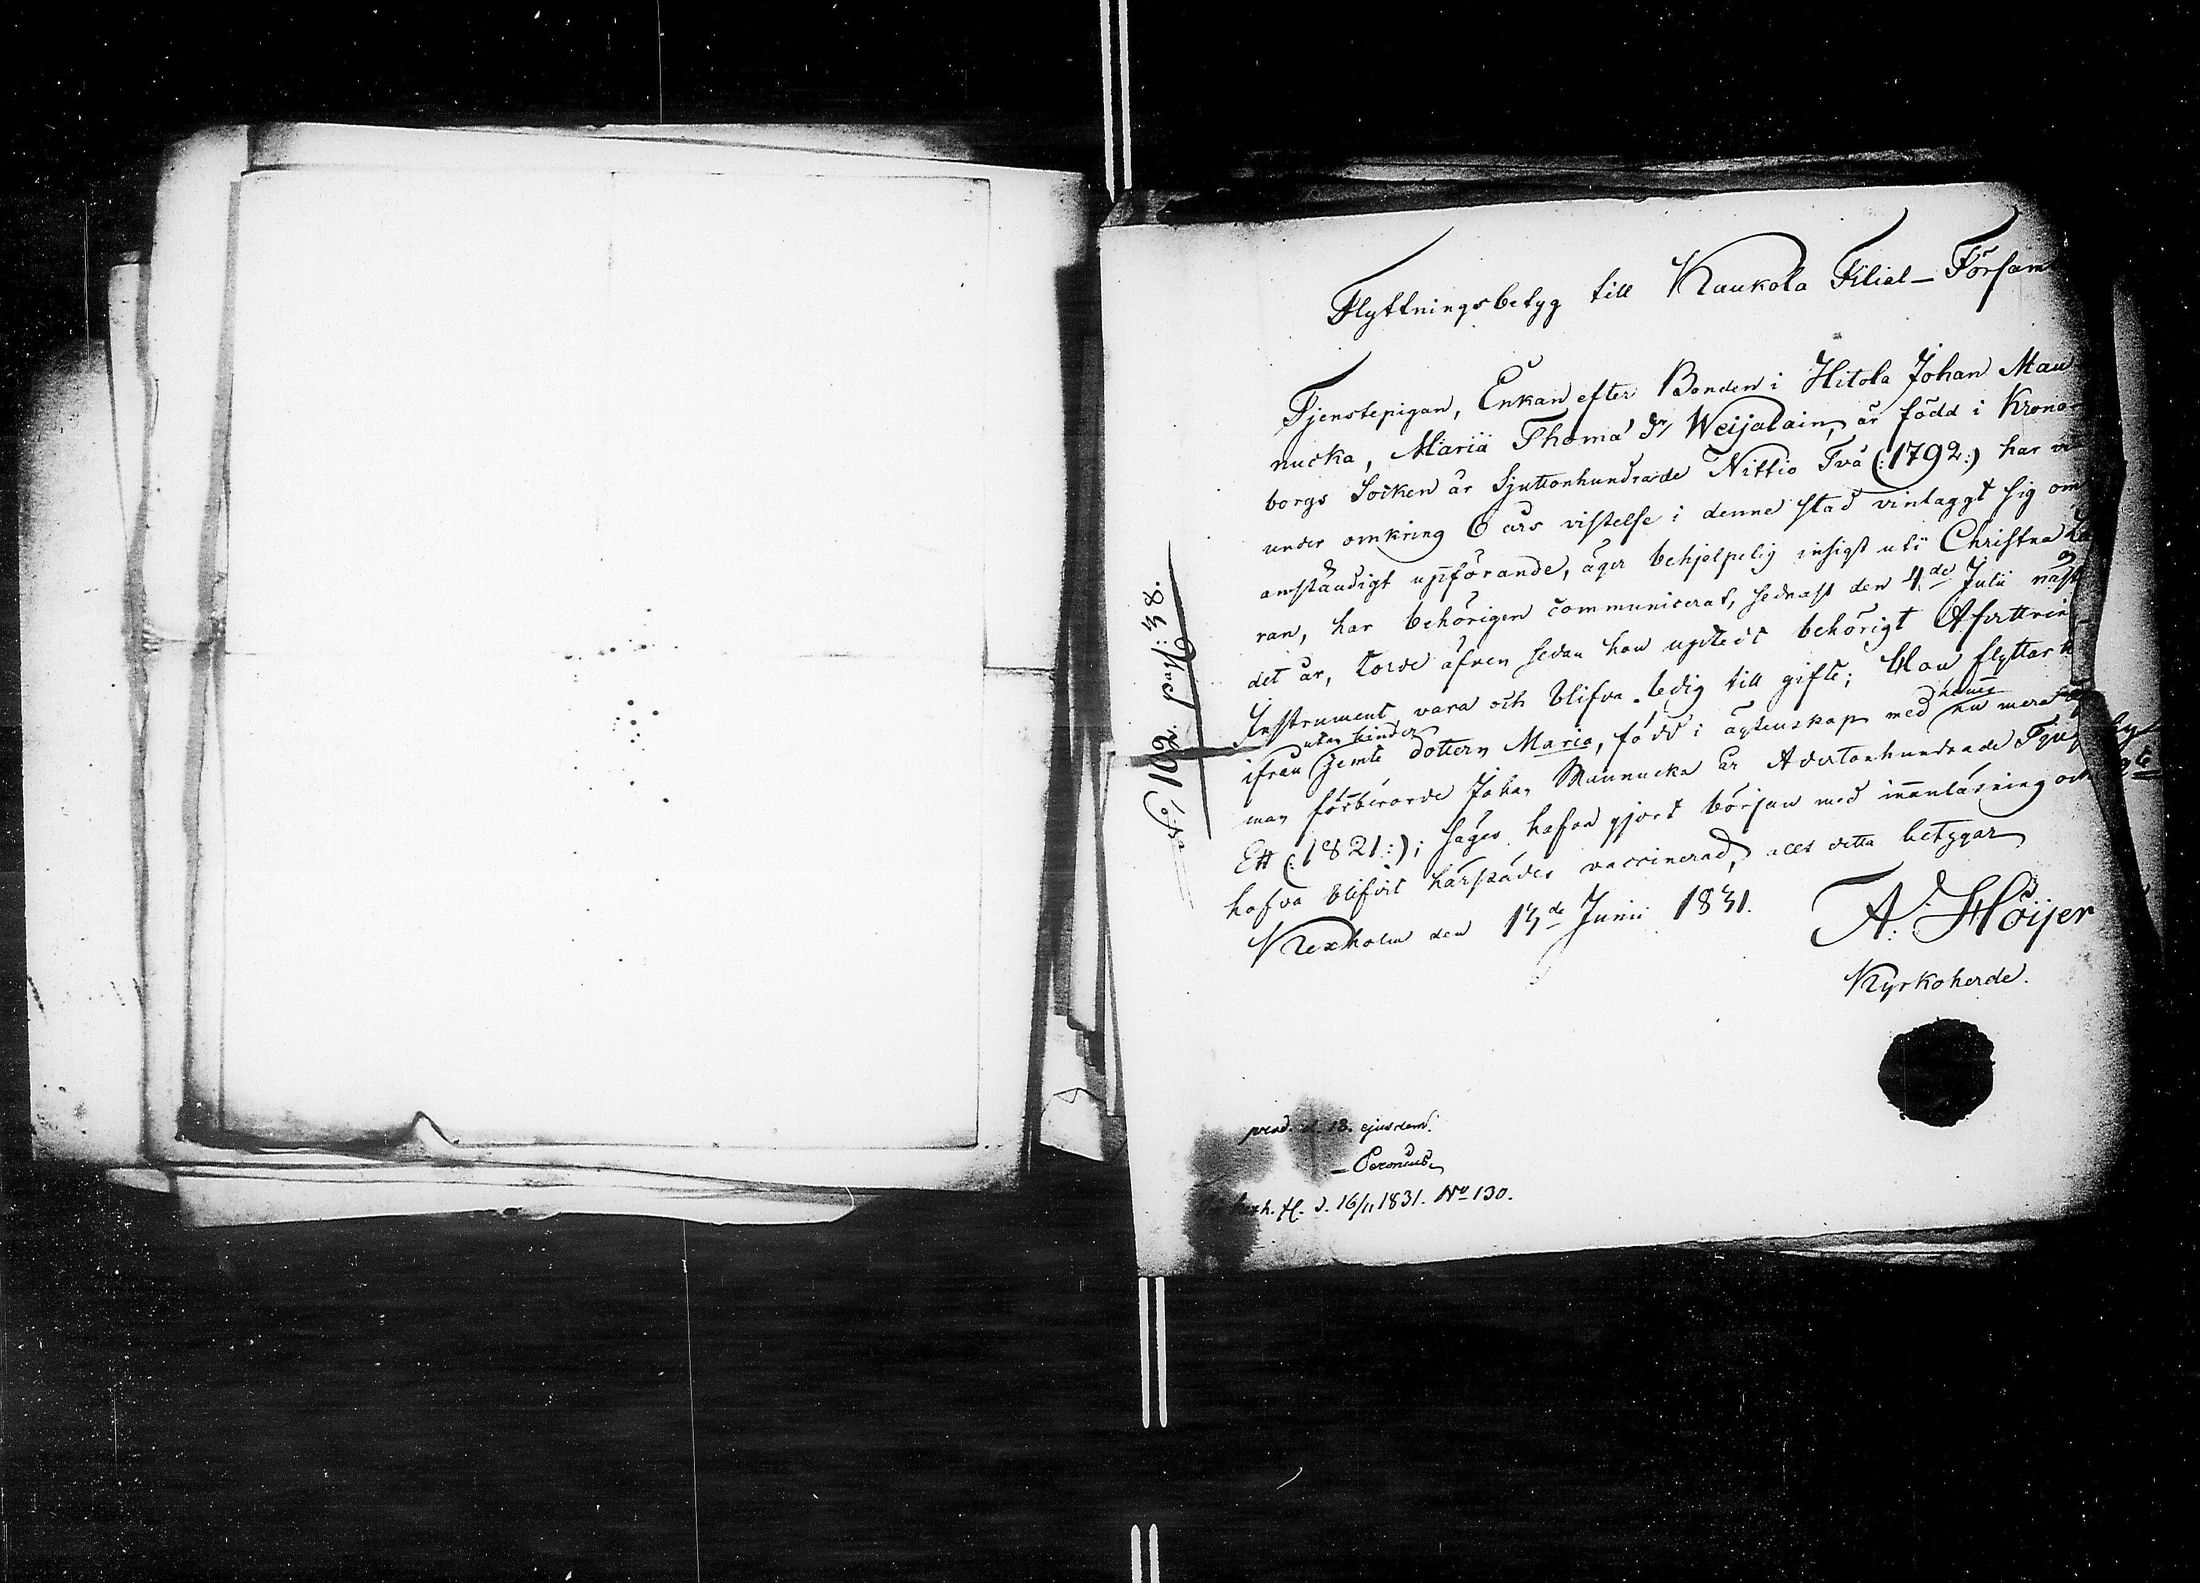 Flyttningsbetyg till Kaukola Filial-Försam
Tjenstepigan, Enkan efter Bonden i Hitola Johan Mau
nucka, Maria Thoma dr Weijalain, är född i Krono
borgs Socken år Sjuttonhundrade Nittio Två (:1792:) har
under omkring 6 års vistelse i denne stad vinlaggt sig om
anständigt uppförande, äger behjelpelig insigt uti Christna
ran, har behörigen communicerat, sednast den 4de Julii näst
det år, torde äfven sedan hon uptedt behörigt Afvittrin
Instrument vara och blifva ledig till gifte; Hon flyttar
utan hinder
ifrån jemte dottern Maria, född i ägtenskap med hennes nu mera
man förberörde Johan Maunucka år Adertonhundrade Tjug
Ett (:1821:); säges hafva gjort början med innanläsning och
hafva blifvit härstädes vaccinerad, allt detta betygar
Kexholm den 13de Junii 1831.
A: Höijer
Kyrkoherde.
No 109. pag: 38.
prod. d. 18. ejusdem.
No 130.
16/11 1831.